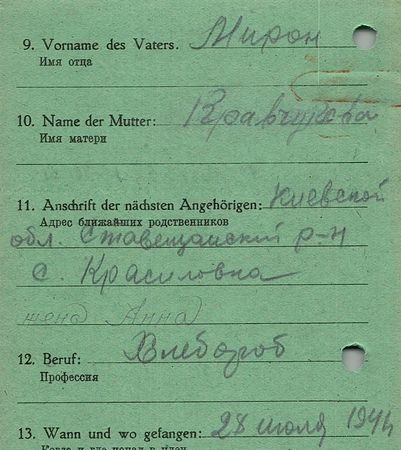 9. Vorname des Vaters. Мирон
Имя отца
10. Name der Mutter: Кравчукова
Имя матери
11. Anschrift der nächsten Angehörigen: Киевской
Адрес ближайших родственников
обл. Ставещанский р-н
с. Красиловка
жена Анна
12. Beruf: Хлебороб
Профессия
13. Wann und wo gefangen: 28 июля 1944
Когда и где попал в плен